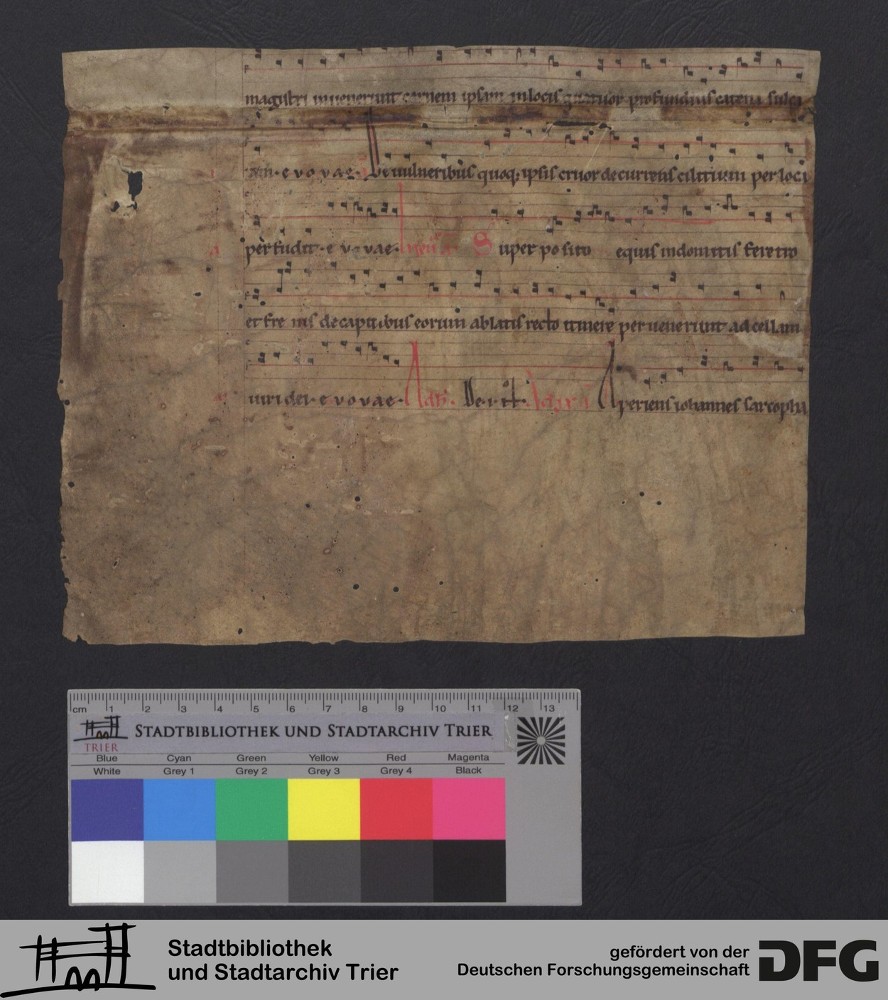 magistri invenerunt carnem ipsam in locis quattuor profundius catena
am. e v o v a e. De vulneribus quoq; ipsis cruor decurrens cilicium per loci
perfudit. e v o v a e. Super posito equis indomitis feretro
et fre nis decapitibus eorum ablatis recto itinere per venerunt ad cellam
viri dei. e v o v a e. Aperiens iohannes sarcopha
cm 1 2 3 4 5 6 7 8 9 10 11 12 13
TRIER
STADTBIBLIOTHEK UND STADTARCHIV TRIER
Blue Cyan Green Yellow Red Magenta
White Grey 1 Grey 2 Grey 3 Grey 4 Black
Stadtbibliothek
und Stadtarchiv Trier
gefördert von der
Deutschen Forschungsgemeinschaft
DFG